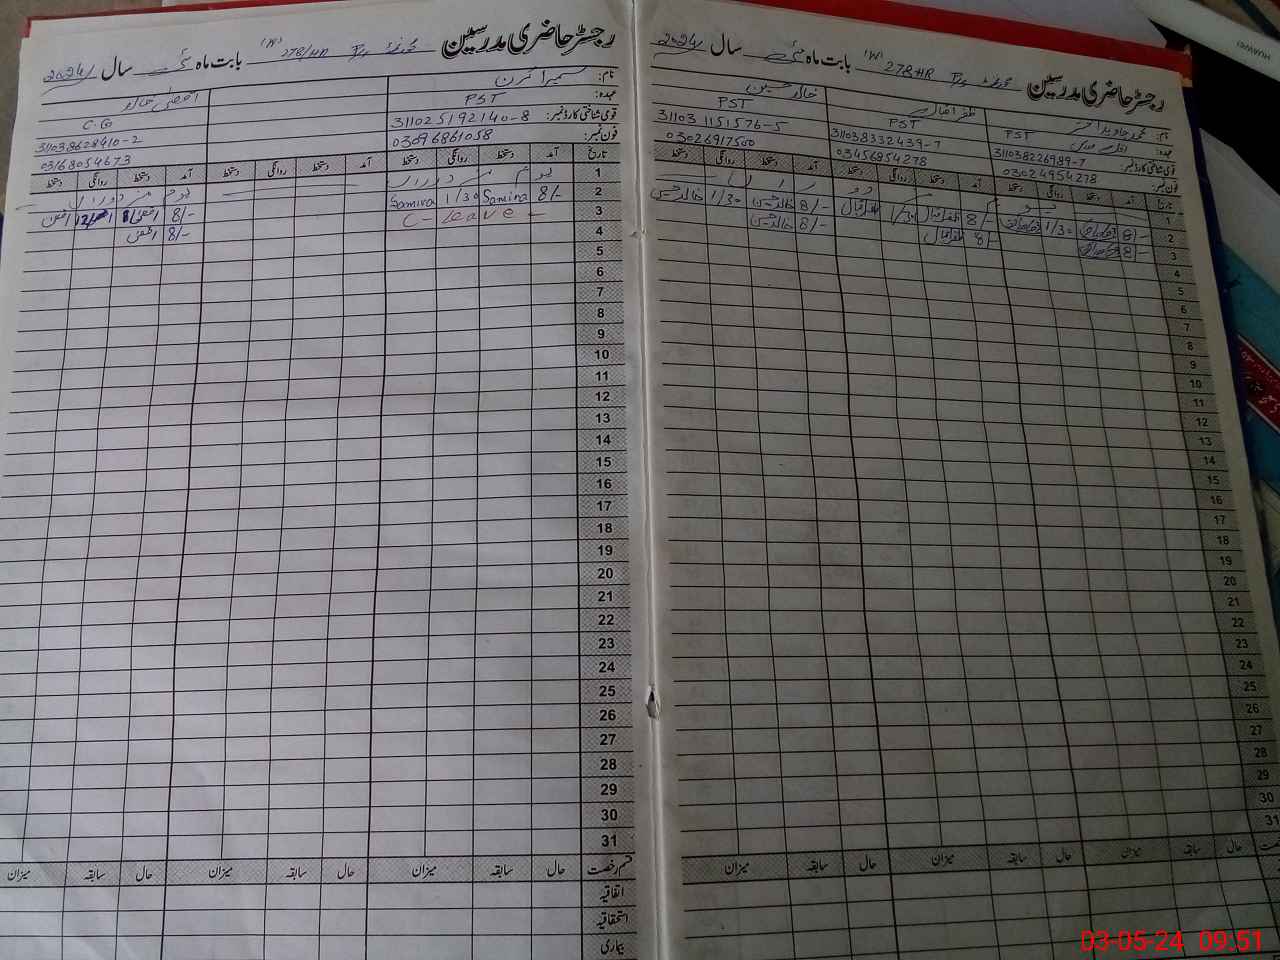 رجسٹر حاضری مدرسین گورنمنٹ 278/HR (W) بابت ماہ مئی سال 2024
نام: محمد جاوید اختر ظفر اقبال خالد حسین
عہدہ: PST PST PST
قومی شناختی کارڈ نمبر: 311038226989-7 311038332439-7 31103 1151576-5
فون نمبر: 03024954278 03456854278 03026917500
تاریخ آمد دستخط روانگی دستخط آمد دستخط روانگی دستخط آمد دستخط روانگی دستخط
1 یوم مزدوراں
2 8/- 1/30 8/- ظفر اقبال 1/30 ظفر اقبال 8/- خالد حسین 1/30 خالد حسین
3 8/- 8/- ظفر اقبال 8/- خالد حسین
4
5
6
7
8
9
10
11
12
13
14
15
16
17
18
19
20
21
22
23
24
25
26
27
28
29
30
31
حال سابقہ میزان حال سابقہ میزان حال سابقہ میزان
رجسٹر حاضری مدرسین گورنمنٹ 278/HR (W) بابت ماہ مئی سال 2024
نام: سمیرا کرن اقصیٰ خالد
عہدہ: PST C.G
قومی شناختی کارڈ نمبر: 311025192140-8 311038628410-2
فون نمبر: 03096861058 03168054673
تاریخ آمد دستخط روانگی دستخط آمد دستخط روانگی دستخط آمد دستخط روانگی دستخط
1 یوم مزدوراں یوم مزدوراں
2 8/- Samira 1/30 Samira 8/- اقصیٰ اقصیٰ
3 C - leave - 8/- اقصیٰ
4
5
6
7
8
9
10
11
12
13
14
15
16
17
18
19
20
21
22
23
24
25
26
27
28
29
30
31
قسم رخصت حال سابقہ میزان حال سابقہ میزان حال سابقہ میزان
اتفاقیہ
استحقاقیہ
بیماری
HUAWEI
03-05-24 09:51